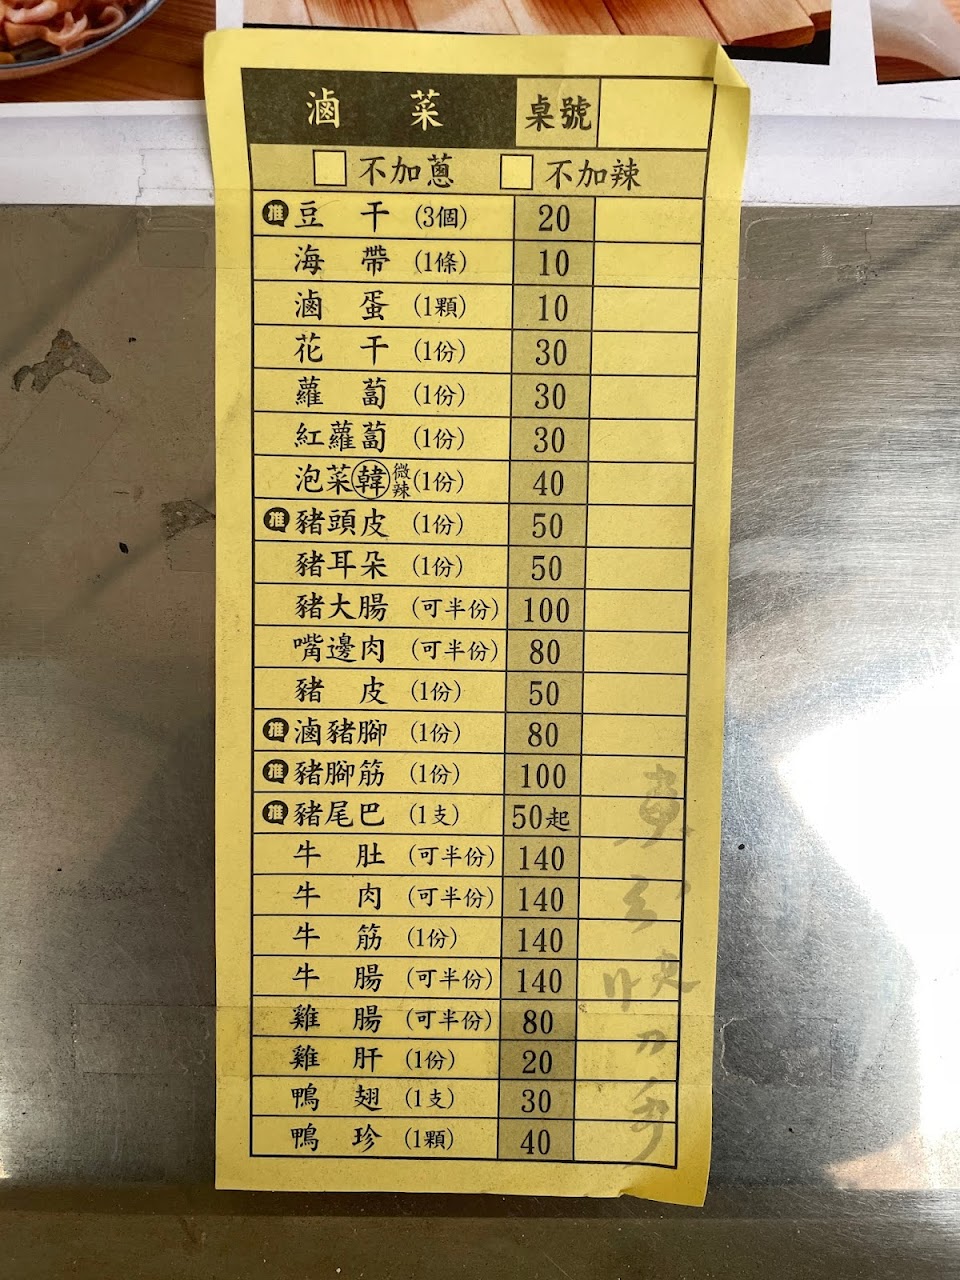 滷菜 桌號
不加蔥 不加辣
推 豆干 (3個) 20
海帶 (1條) 10
滷蛋 (1顆) 10
花干 (1份) 30
蘿蔔 (1份) 30
紅蘿蔔 (1份) 30
泡菜韓 微辣 (1份) 40
推 豬頭皮 (1份) 50
豬耳朵 (1份) 50
豬大腸 (可半份) 100
嘴邊肉 (可半份) 80
豬皮 (1份) 50
推 滷豬腳 (1份) 80
推 豬腳筋 (1份) 100
推 豬尾巴 (1支) 50起
牛肚 (可半份) 140
牛肉 (可半份) 140
牛筋 (1份) 140
牛腸 (可半份) 140
雞腸 (可半份) 80
雞肝 (1份) 20
鴨翅 (1支) 30
鴨珍 (1顆) 40